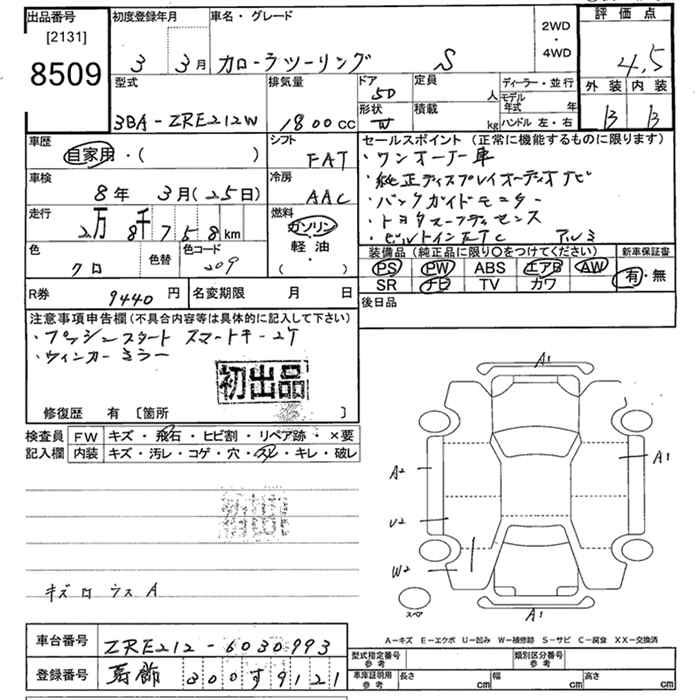 出品番号
[2131]
8509
初度登録年月
3 3月
車名・グレード
カローラツーリング S
2WD
・
4WD
評価点
4.5
外装 内装
B B
型式
3BA-ZRE212W
排気量
1800cc
ドア
5D
形状
W
定員
人
積載
kg
ディーラー・並行
モデル年式 年
ハンドル 左・右
車歴
自家用・( )
シフト
FAT
車検
8年 3月(25日)
冷房
AAC
走行
2万8千758km
燃料
ガソリン
軽油
( )
色
クロ
色替
色コード
209
セールスポイント(正常に機能するものに限ります)
・ワンオーナー車
・純正ディスプレイオーディオナビ
・バックガイドモニター
・トヨタセーフティセンス
・ビルトインETC アルミ
装備品(純正品に限り○をつけてください)
PS PW ABS エアB AW
SR ナビ TV カワ
新車保証書
有・無
R券
9440円
名変期限 月 日
後日品
注意事項申告欄(不具合内容等は具体的に記入して下さい)
・プッシュスタート スマートキー2ケ
・ウィンカーミラー
初出品
修復歴 有 [箇所 ]
検査員記入欄
FW キズ・飛石・ヒビ割・リペア跡・×要
内装 キズ・汚レ・コゲ・穴・スレ・キレ・破レ
キズロウスA
A1
A2
A1
U2
W2
スペア
A1
A-キズ E-エクボ U-凹み W-補修跡 S-サビ C-腐食 XX-交換済
車台番号
ZRE212-6030993
登録番号
葛飾 300す9121
型式指定番号
参考
類別区分番号
参考
車庫証明用
参考
長さ cm
幅 cm
高さ cm